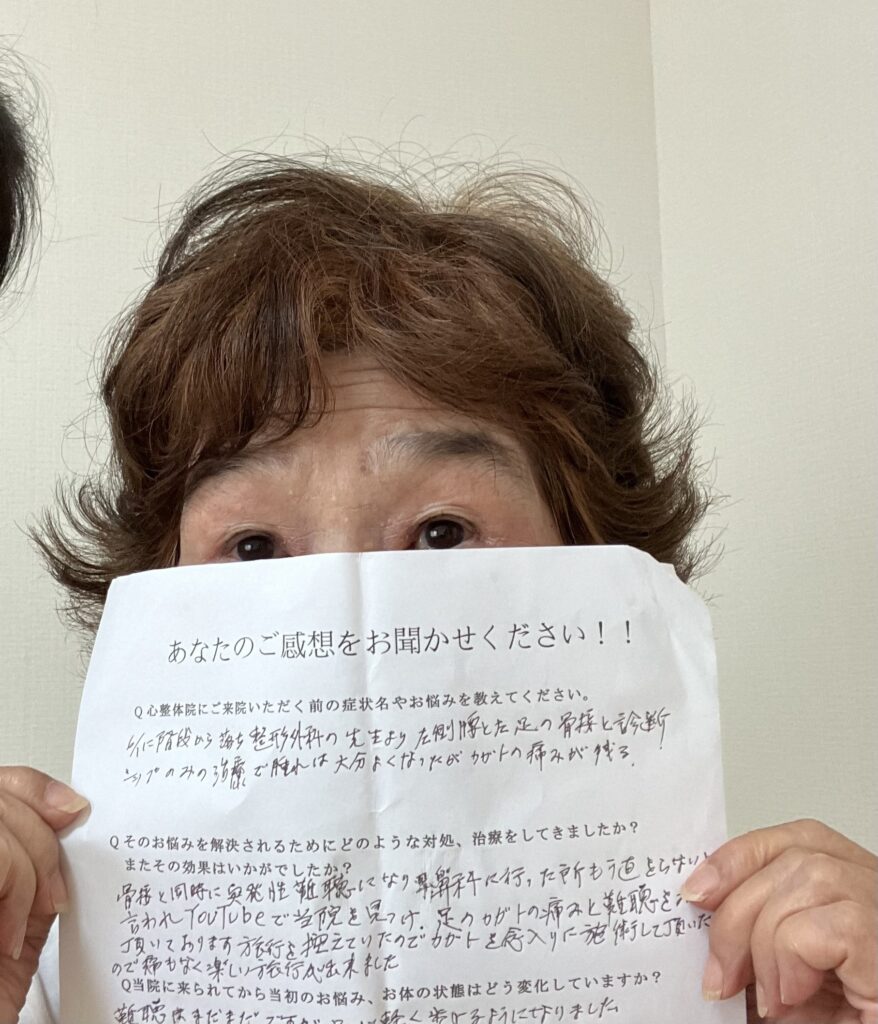 あなたのご感想をお聞かせください！！
Q心整体院にご来院いただく前の症状名やお悩みを教えてください。
階段から落ち整形外科の先生より左側腰と左足の骨接と診断
シップのみの治療で腫れは大分よくなったがカガトの痛みが残る.
Qそのお悩みを解決されるためにどのような対処、治療をしてきましたか？
またその効果はいかがでしたか？
骨接と同時に突発性難聴になり耳鼻科に行った所もう直らない
言われYouTubeで当院を見つけ.足のカガトの痛みと難聴を
頂いております旅行を控えていたのでカガトを念入りに施術して頂いた
ので痛もなく楽しい旅行が出来ました
Q当院に来られてから当初のお悩み、お体の状態はどう変化していますか？
難聴はまだまだですが 軽く歩けるようになりました